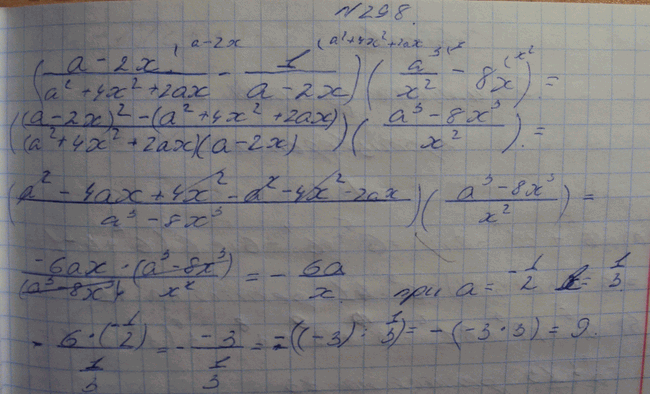 №298.
(a-2x/(a²+4x²+2ax) ⁽ᵃ⁻²ˣ - 1/(a-2x) ⁽ᵃ²⁺⁴ˣ²⁺²ᵃˣ)(a³/x² - 8x ⁽ˣ²) =
((a-2x)² - (a²+4x²+2ax)/(a²+4x²+2ax)(a-2x))(a³-8x³/x²) =
(a²-4ax+4x²-a²-4x²-2ax/a³-8x³)(a³-8x³/x²) =
-6ax·(a³-8x³)/(a³-8x³)·x² = -6a/x при a = -1/2 x = 1/3
- 6·(-1/2)/(1/3) = - -3/(1/3) = -((-3) : 1/3) = -(-3·3) = 9.